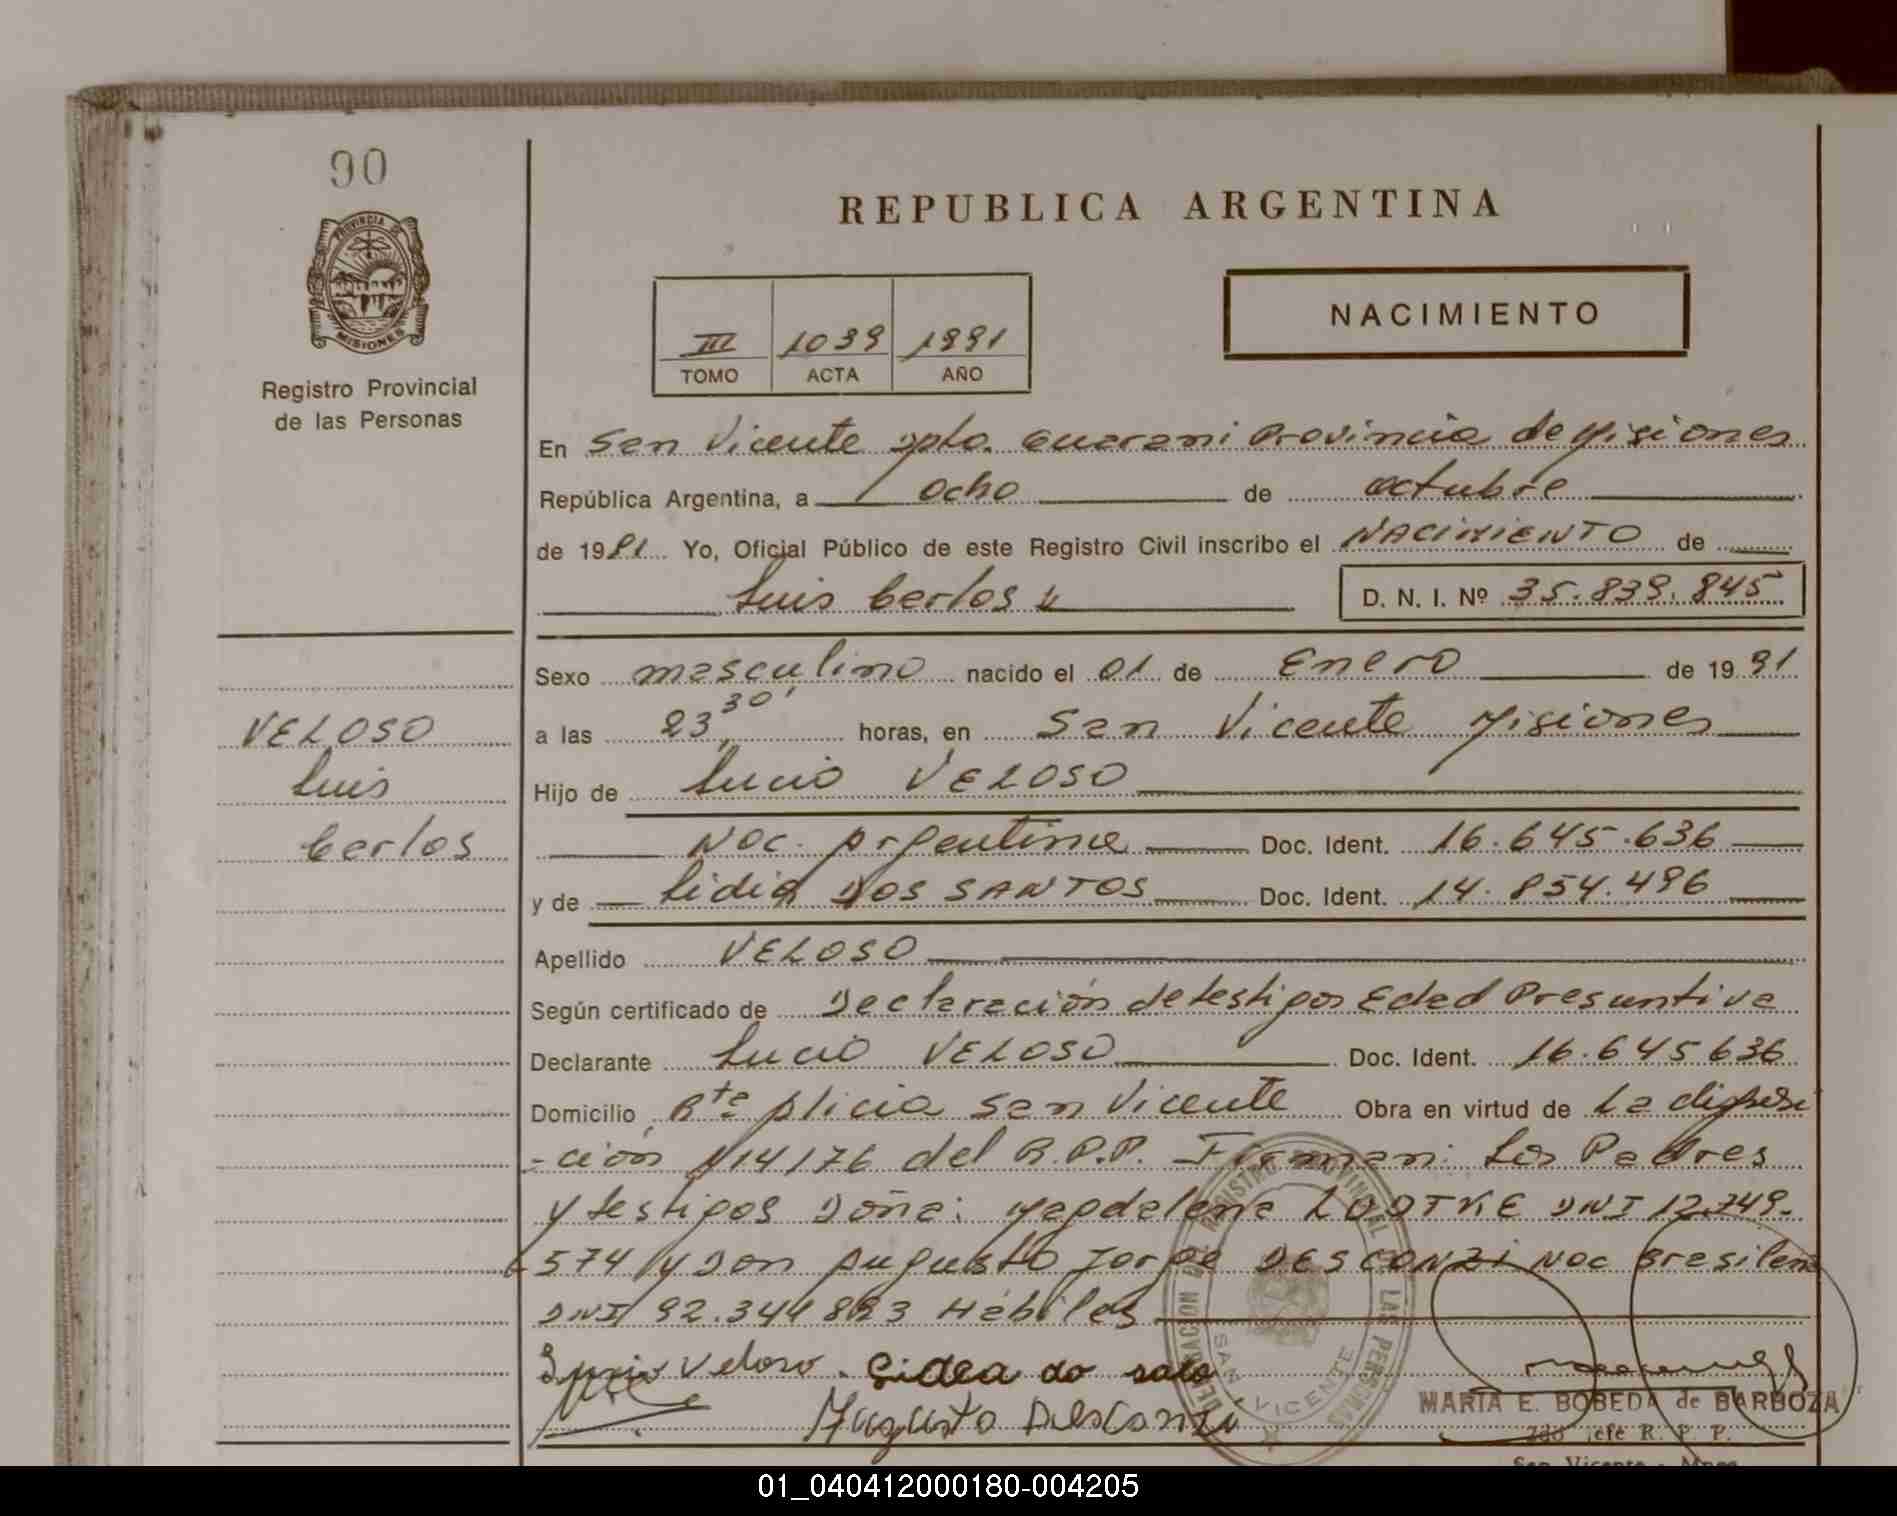 90
REPUBLICA ARGENTINA
PROVINCIA DE MISIONES
Registro Provincial
de las Personas
III 1039 1991
TOMO ACTA AÑO
NACIMIENTO
En San Vicente Dpto. Guarani Provincia de Misiones
República Argentina, a ocho de octubre
de 1991 Yo, Oficial Público de este Registro Civil inscribo el NACIMIENTO de
Luis Carlos
D. N. I. Nº 35.839.845
Sexo masculino nacido el 01 de Enero de 1991
a las 23,30' horas, en San Vicente Misiones
Hijo de Lucio VELOSO
Nac. Argentina Doc. Ident. 16.645.636
y de Lidia DOS SANTOS Doc. Ident. 14.854.496
Apellido VELOSO
Según certificado de Declaración de testigos Edad Presuntiva
Declarante Lucio VELOSO Doc. Ident. 16.645636
Domicilio Rta Alicia San Vicente Obra en virtud de La disposi
-ción Nº14/76 del R.P.P. Firman: Los Padres
y testigos Doña: Magdalena DNI 12.749.
574 y Don Augusto Jorge DESCONZI Nac Brasilena
DNI 92.344 893 Hábiles
VELOSO
Luis
Carlos
Lucio Veloso
Augusto Desconzi
SAN VICENTE
MARIA E. BOBEDA de BARBOZA
2do Jefe R. P. P.
San Vicente - Mnes.
01_040412000180-004205